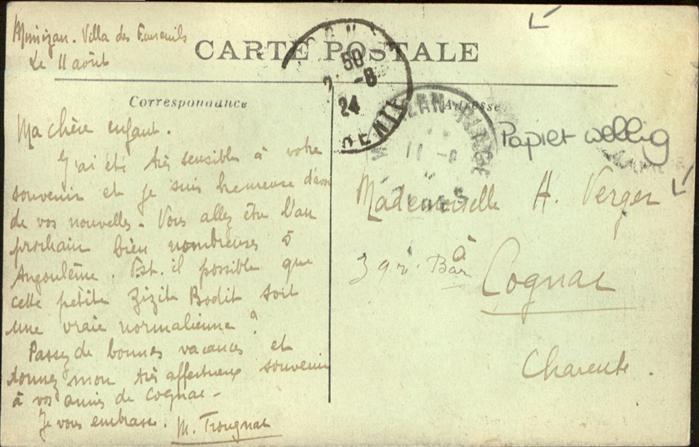 Mimizan. Villa des Fauteuils
Le 11 août
CARTE POSTALE
Correspondance
Adresse
50
-8
24
MIMIZAN-PLAGE
11 -8
Papier wellig
Ma chère enfant.
J'ai été très sensible à votre
souvenir et je suis heureuse d'avoir
de vos nouvelles. Vous allez être l'an
prochain bien nombreuses à
Angoulême. Est-il possible que
cette petite Zizite Bodit soit
une vraie normalienne ?
Passez de bonnes vacances et
donnez mon très affectueux souvenir
à vos amies de Cognac.
Je vous embrasse. M. Trougnac
Mademoiselle H. Verger
à
Cognac
Charente.